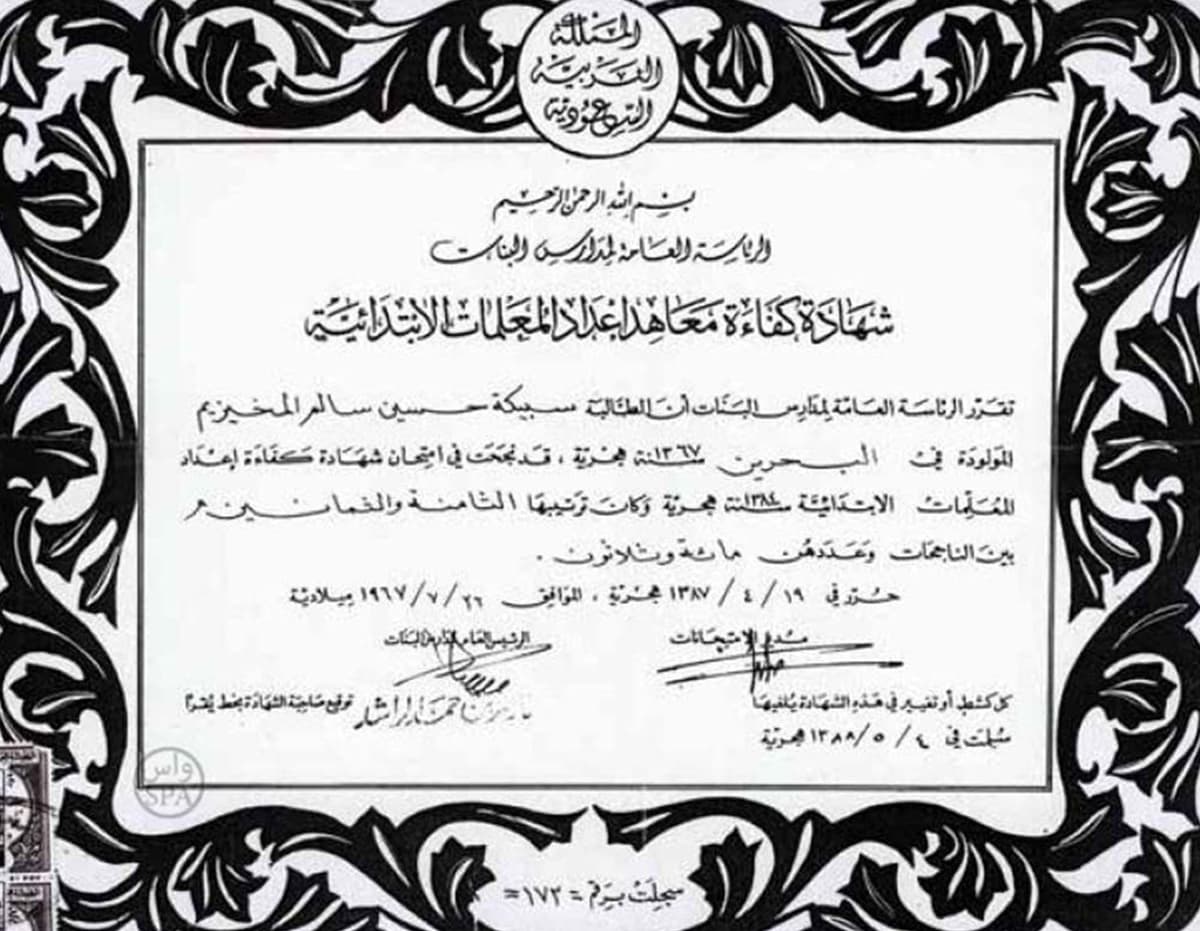 المملكة
العربية
السعودية
بسم الله الرحمن الرحيم
الرئاسة العامة لمدارس البنات
شهادة كفاءة معاهد إعداد المعلمات الابتدائية
تقرر الرئاسة العامة لمدارس البنات أن الطالبة سبيكة حسين سالم المخيزيم
المولودة في البحرين سنة ١٣٦٧ هجرية ، قد نجحت في امتحان شهادة كفاءة إعداد
المعلمات الابتدائية سنة ١٣٨٤ هجرية وكان ترتيبها الثامنة والثمانين
بين الناجحات وعددهن مائة وثلاثون .
حرر في ١٩ / ٤ / ١٣٨٧ هجرية ، الموافق ٢٦ / ٧ / ١٩٦٧ ميلادية
مدير الامتحانات الرئيس العام لمدارس البنات
ناصر بن حمد الراشد
كل كشط أو تغيير في هذه الشهادة يلغيها توقيع صاحبة الشهادة بخط يقرأ
سلمت في ٤ / ٥ / ١٣٨٨ هجرية
واس
SPA
سجلت برقم = ١٧٣ =